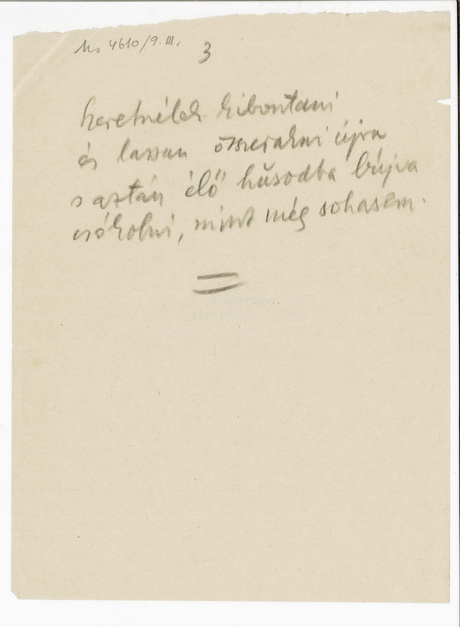 Ms 4610/9.III.
3
Szeretnélek kibontani
és lassan összerakni újra
s aztán élő húsodba bújva
csókolni, mint még sohasem.